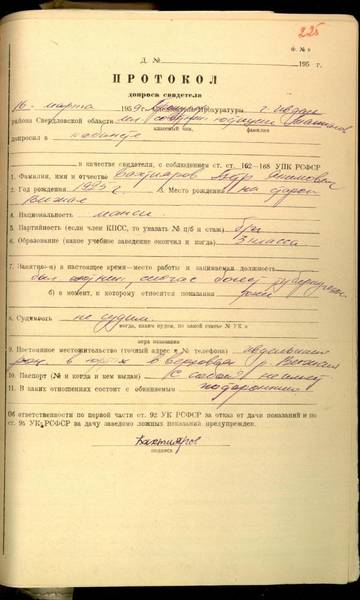 225
Ф. № 8
Д. № 195 г.
ПРОТОКОЛ
допроса свидетеля
16 марта 1959 г. Прокуратуры г. Ивдель
района Свердловской области мл. советник юстиции
классный чин, фамилия
допросил в кабинете
в качестве свидетеля, с соблюдением ст. ст. 162—168 УПК РСФСР
1. Фамилия, имя и отчество Бахтияров Петр
2. Год рождения 1925 г. 3. Место рождения на старой
Вижае
4. Национальность манси
5. Партийность (если член КПСС, то указать № п/б и стаж) б/п
6. Образование (какое учебное заведение окончил и когда) 3 класса
7. Занятие: а) в настоящее время — место работы и занимаемая должность
был охотник, сейчас болен туберкулезом
б) в момент, к которому относятся показания
8. Судимость не судим
когда, каким судом, по какой статье УК и
мера показания
9. Постоянное местожительство (точный адрес и № телефона) Ивдельский
р-н в юртах Бахтиярова р. Вижай
10. Паспорт (№ и когда и кем выдан) с собой не имеет
11. В каких отношениях состоит с обвиняемым посторонний
Об ответственности по первой части ст. 92 УК РСФСР за отказ от дачи показаний и по
ст. 95 УК РСФСР за дачу заведомо ложных показаний предупрежден.
Бахтияров
подпись